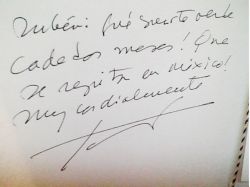 Rubén: qué suerte verte
cada dos meses! Que
se repita en México!
muy cordialmente